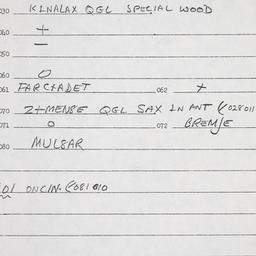 030 KLNALAX QGL SPECIAL WOOD
040 +
—
050
060 O
061 FARCTADET 062 +
070 Z+MENSE QGL SAX IN ANT (028011
071 O 072 BREMSE
080 MULSAR
ONCIN. (081010